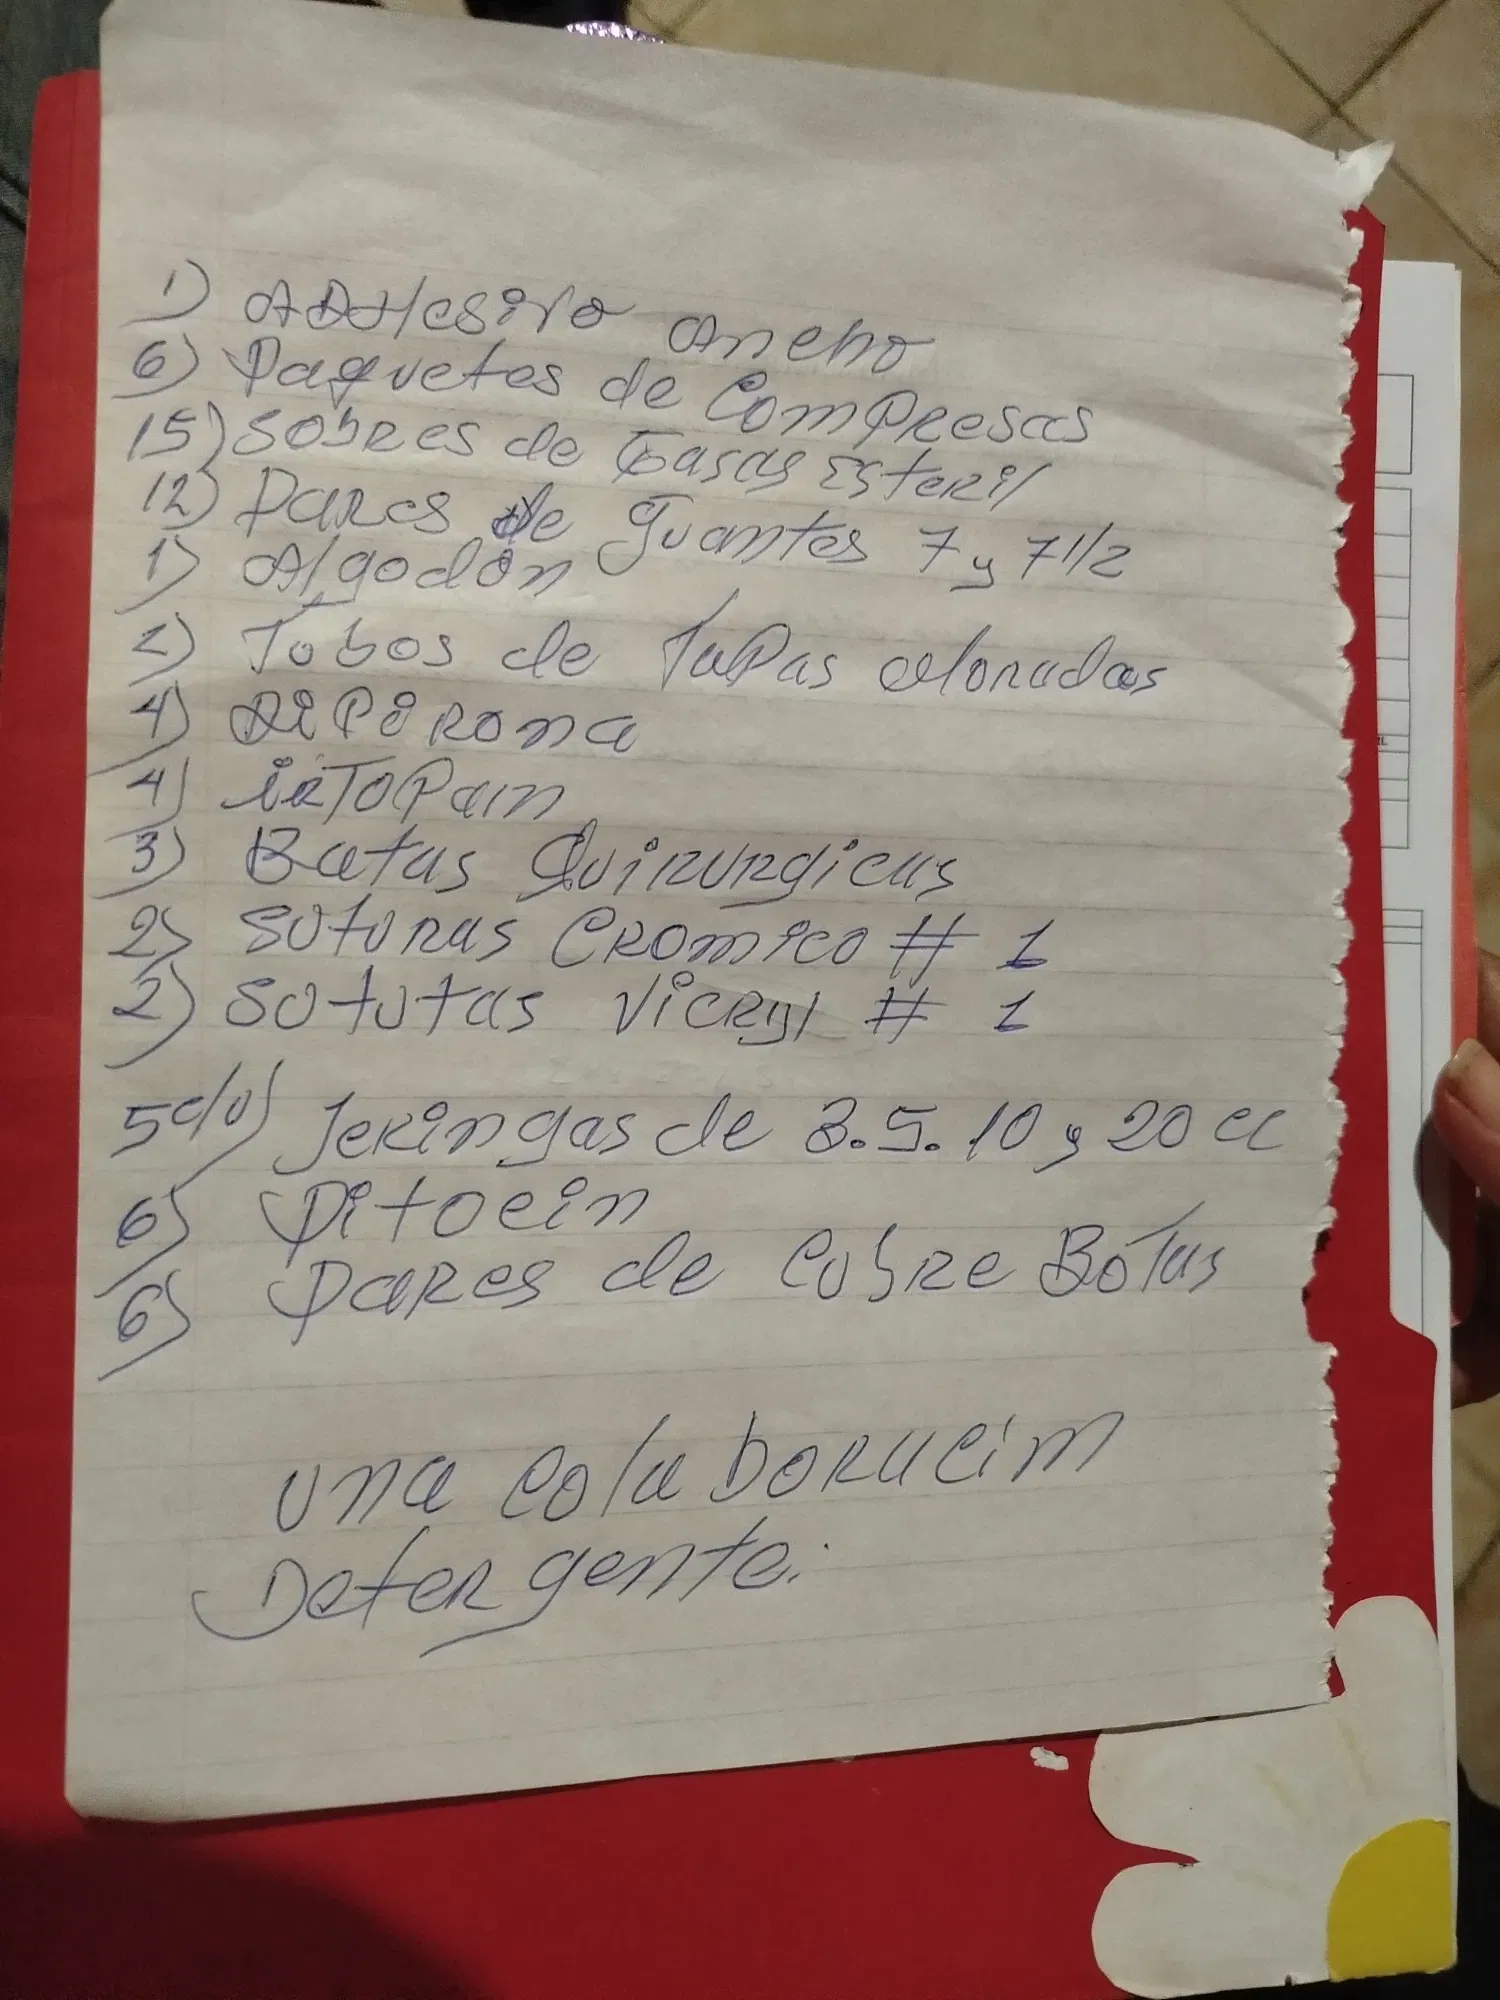 1) Adhesivo ancho
6) Paquetes de Compresas
15) Sobres de Gasas Esteril
12) Pares de guantes 7 y 7 1/2
1) Algodón
2) Tobos de Tapas Moradas
4) Dipirona
4) irtopan
3) Batas Quirurgicas
2) Soturas Cromico # 1
2) Sotutas Vicryl # 1
5 c/u) Jeringas de 3.5.10 y 20 cc
6) Pitocin
6) Pares de Cubre Botas
una colaboracim
Detergente.